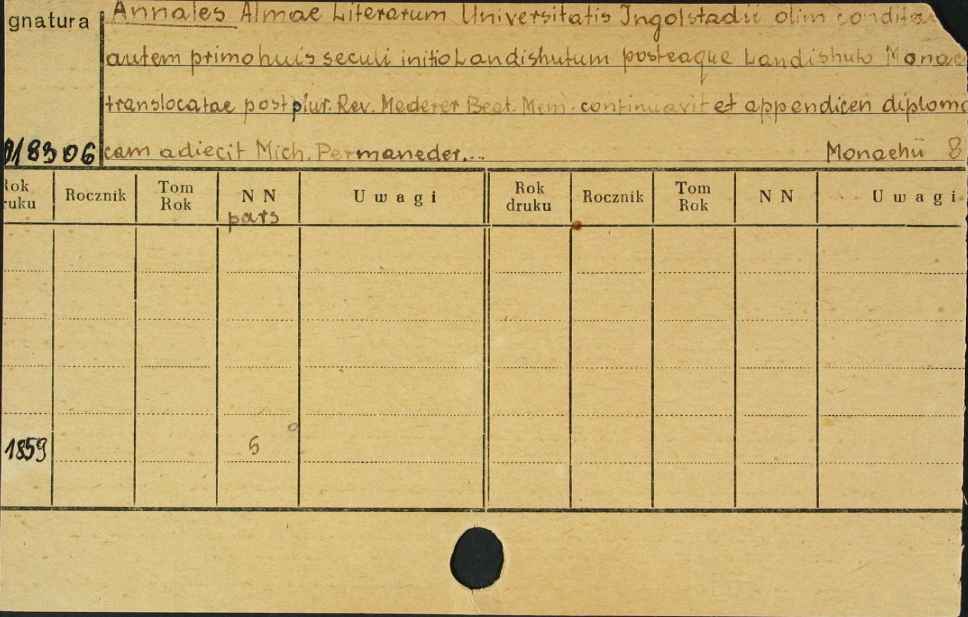 gnatura Annales Almae Literarum Universitatis Ingolstadii olim conditae
autem primo huis seculi initio Landishutum posteaque Landishuto Monac
translocatae post plur. Rev. Mederer Beat. Mem. continuavit et appendicen diploma
018306 cam adiecit Mich. Permaneder... Monachii 8
Rok druku Rocznik Tom Rok N N Uwagi Rok druku Rocznik Tom Rok N N Uwagi
pars
1859 5